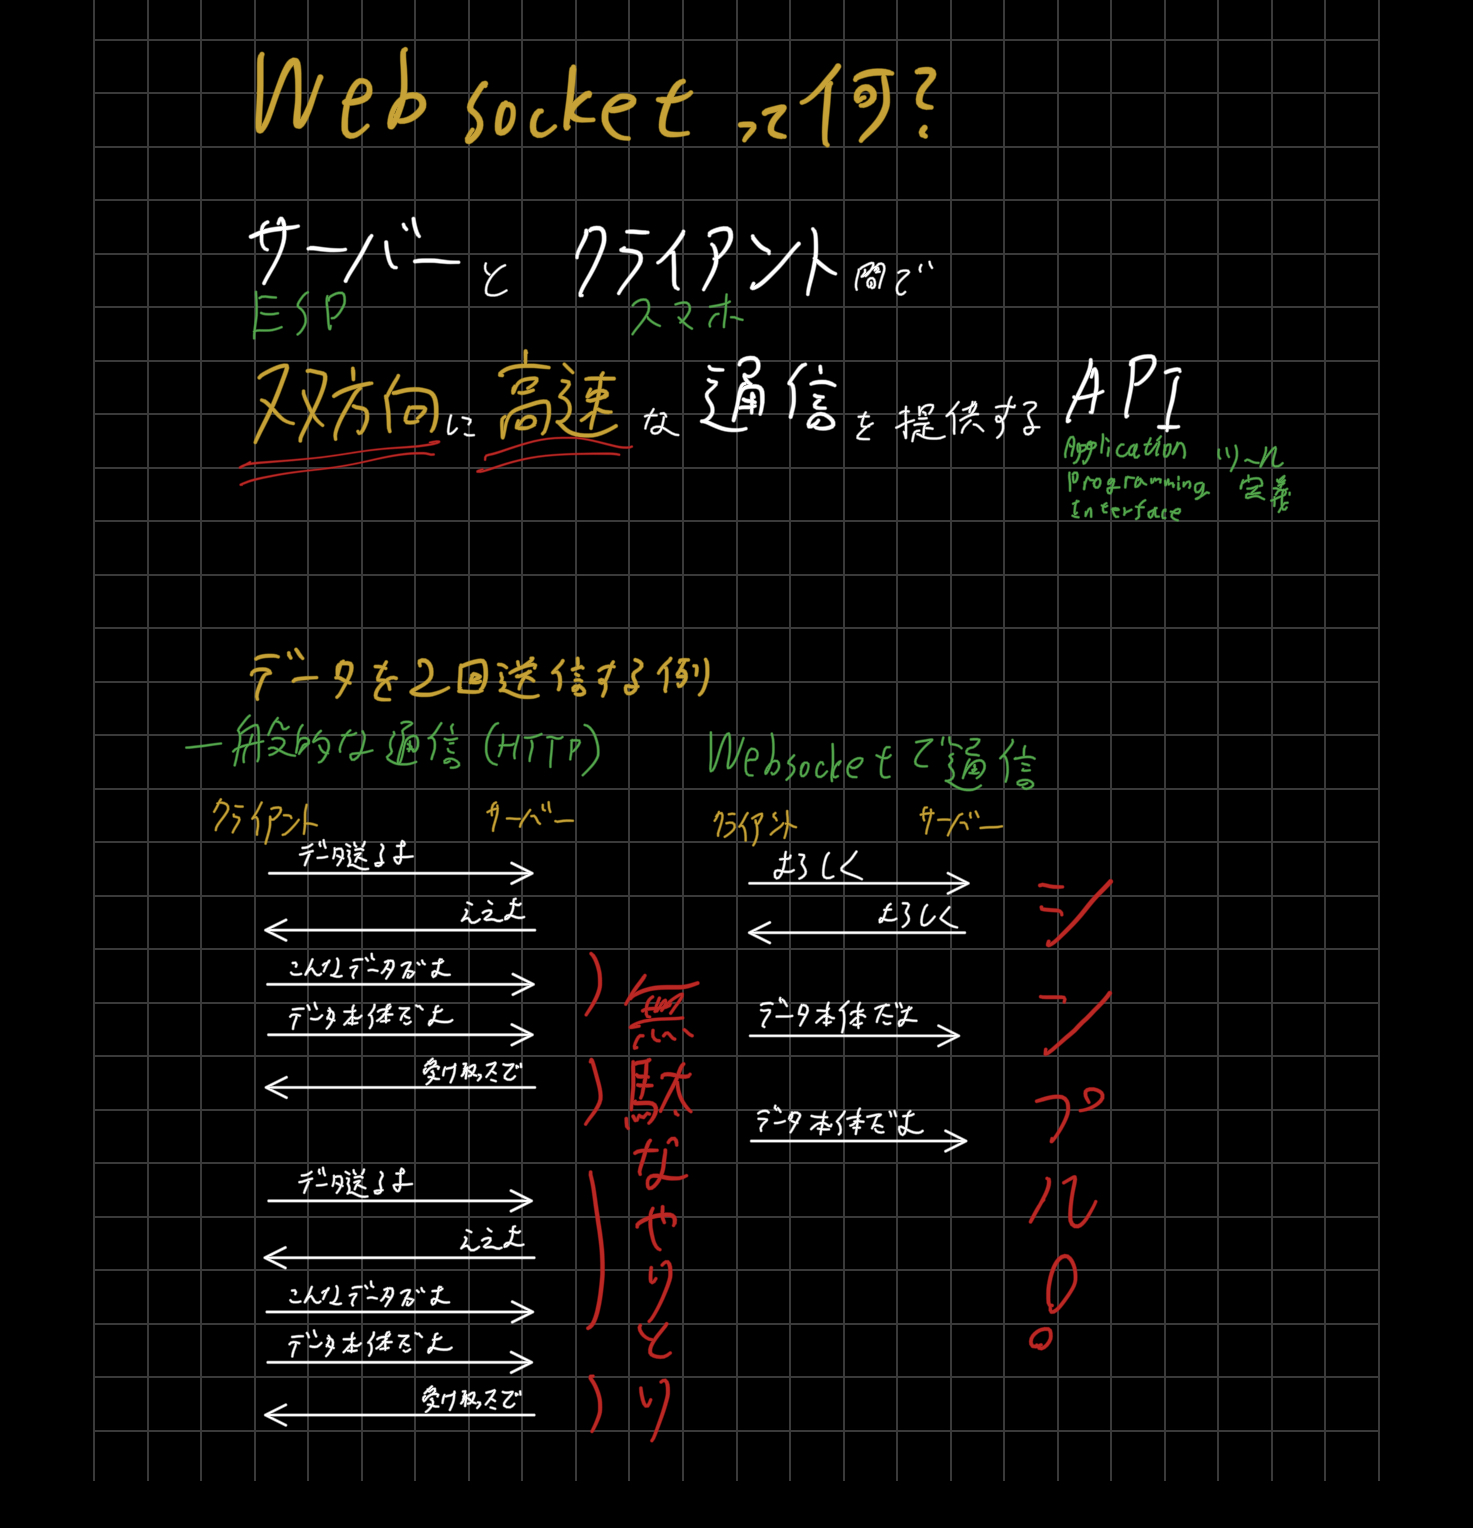 Websocketって何?
サーバーとクライアント間で
ESP スマホ
双方向に高速な通信を提供するAPI
Application ツール
Programming 定義
Interface
データを2回送信する例
一般的な通信(HTTP)
クライアント サーバー
データ送るよ
ええよ
こんなデータだよ
データ本体だよ
受け取ったで
データ送るよ
ええよ
こんなデータだよ
データ本体だよ
受け取ったで
無駄なやりとり
Websocketで通信
クライアント サーバー
よろしく
よろしく
データ本体だよ
データ本体だよ
シンプル!